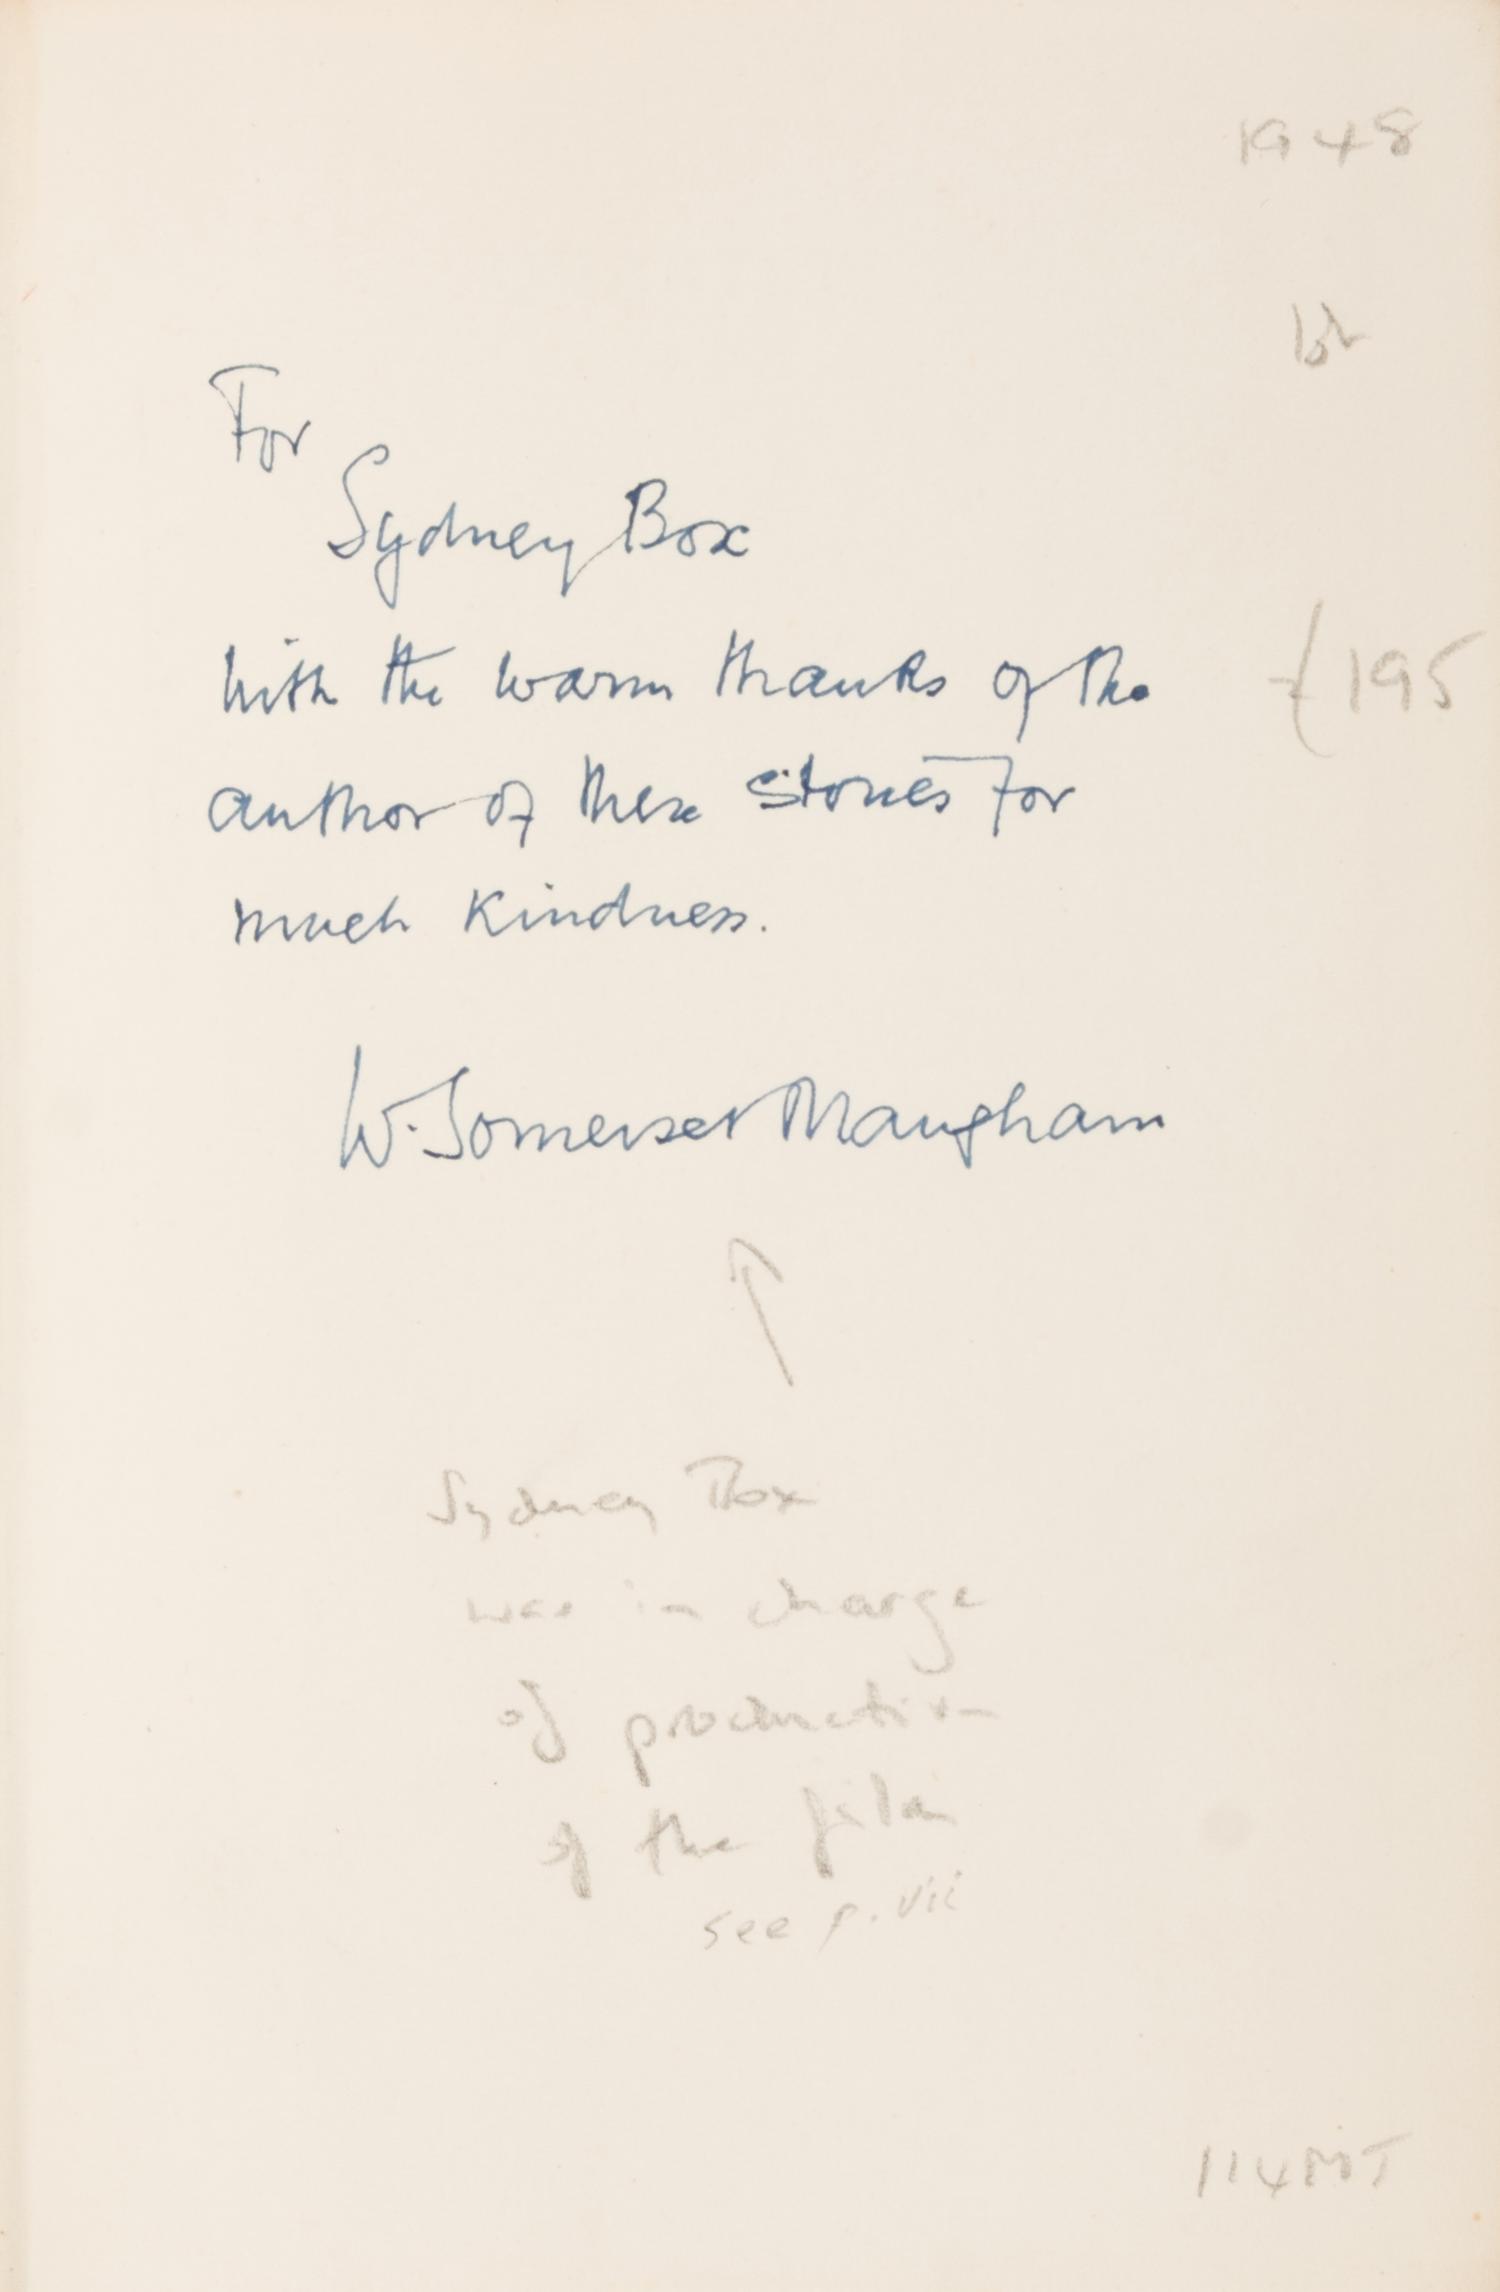 1948
For
Sydney Box
With the warm thanks of the
£195
author of these stories for
much kindness.
W. Somerset Maugham
Sydney Box
was in charge
of production
of the film
see p. vii
114MT